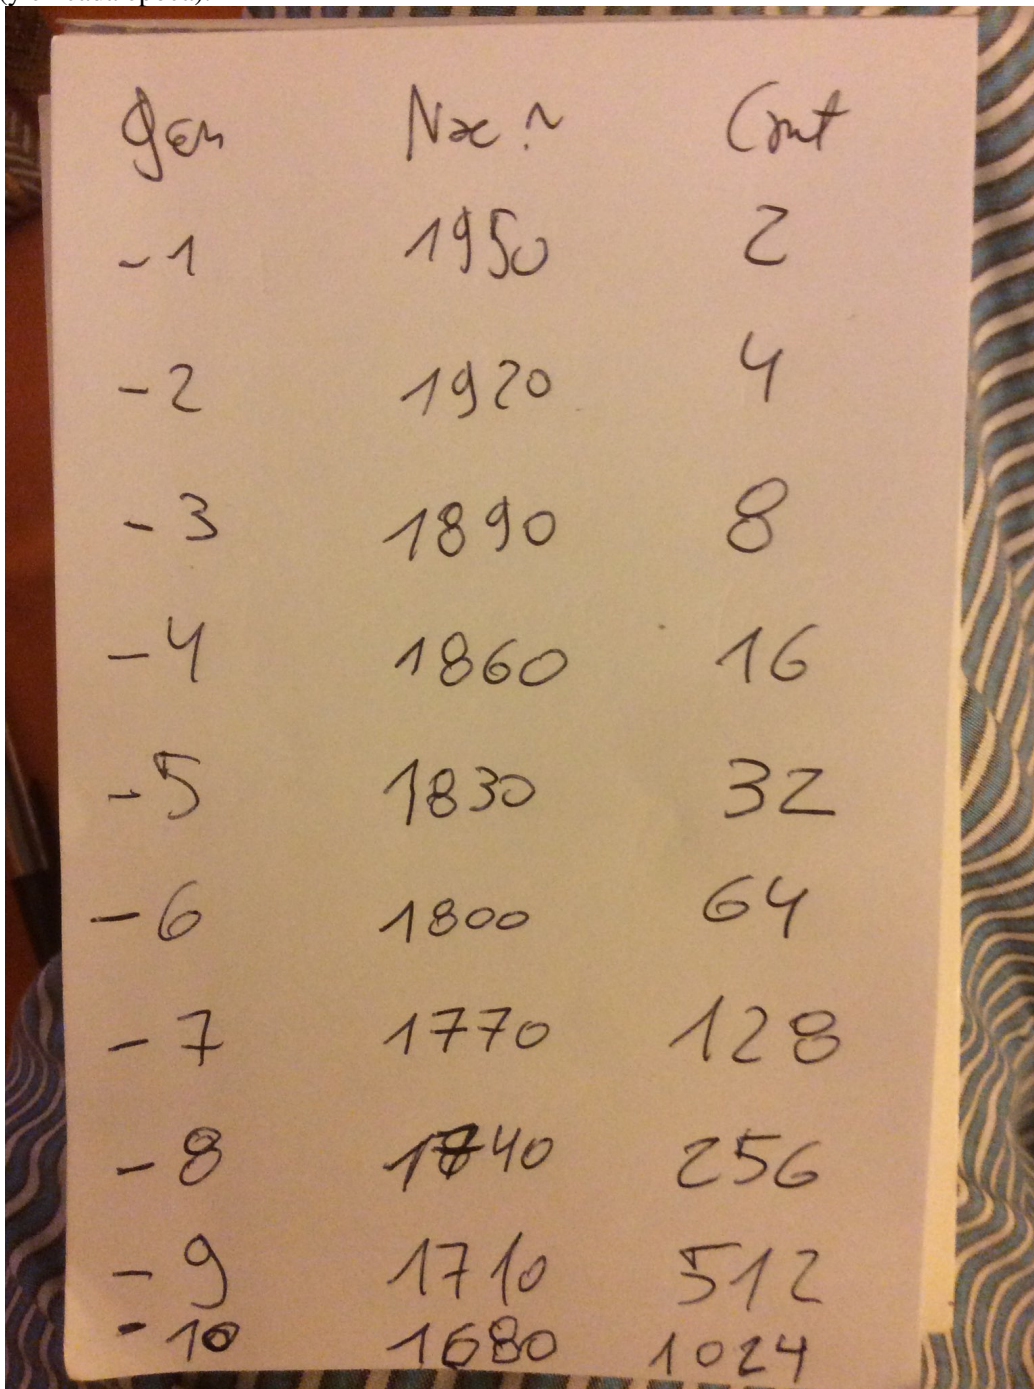 (y en cada época).
Gen Nac ~ Cant
-1 1950 2
-2 1920 4
-3 1890 8
-4 1860 16
-5 1830 32
-6 1800 64
-7 1770 128
-8 1740 256
-9 1710 512
-10 1680 1024